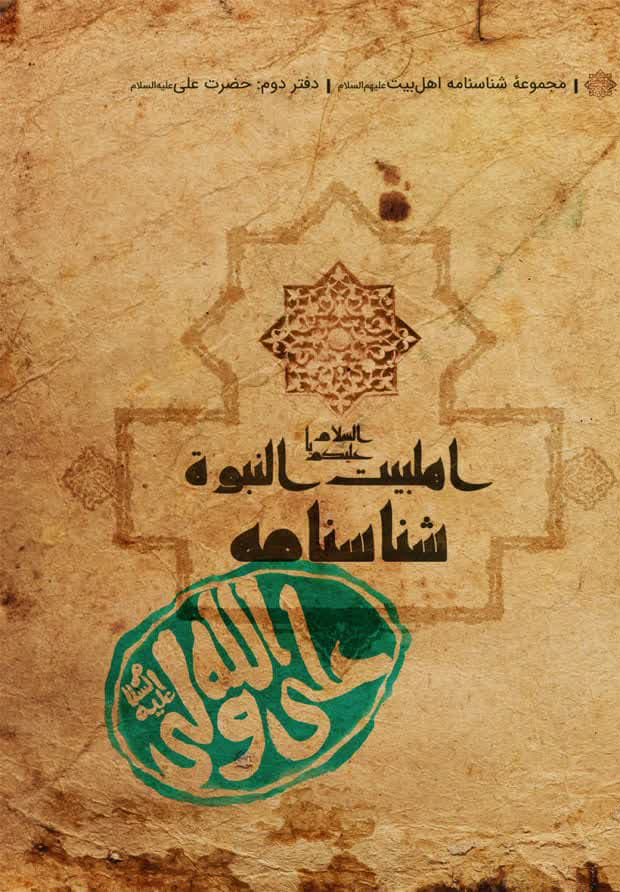 مجموعهٔ شناسنامه اهل‌بیت علیهم‌السلام | دفتر دوم: حضرت علی علیه‌السلام
السلام علیکم یا
اهلبیت النبوة
شناسنامه
علی ولی الله
علیه السلام